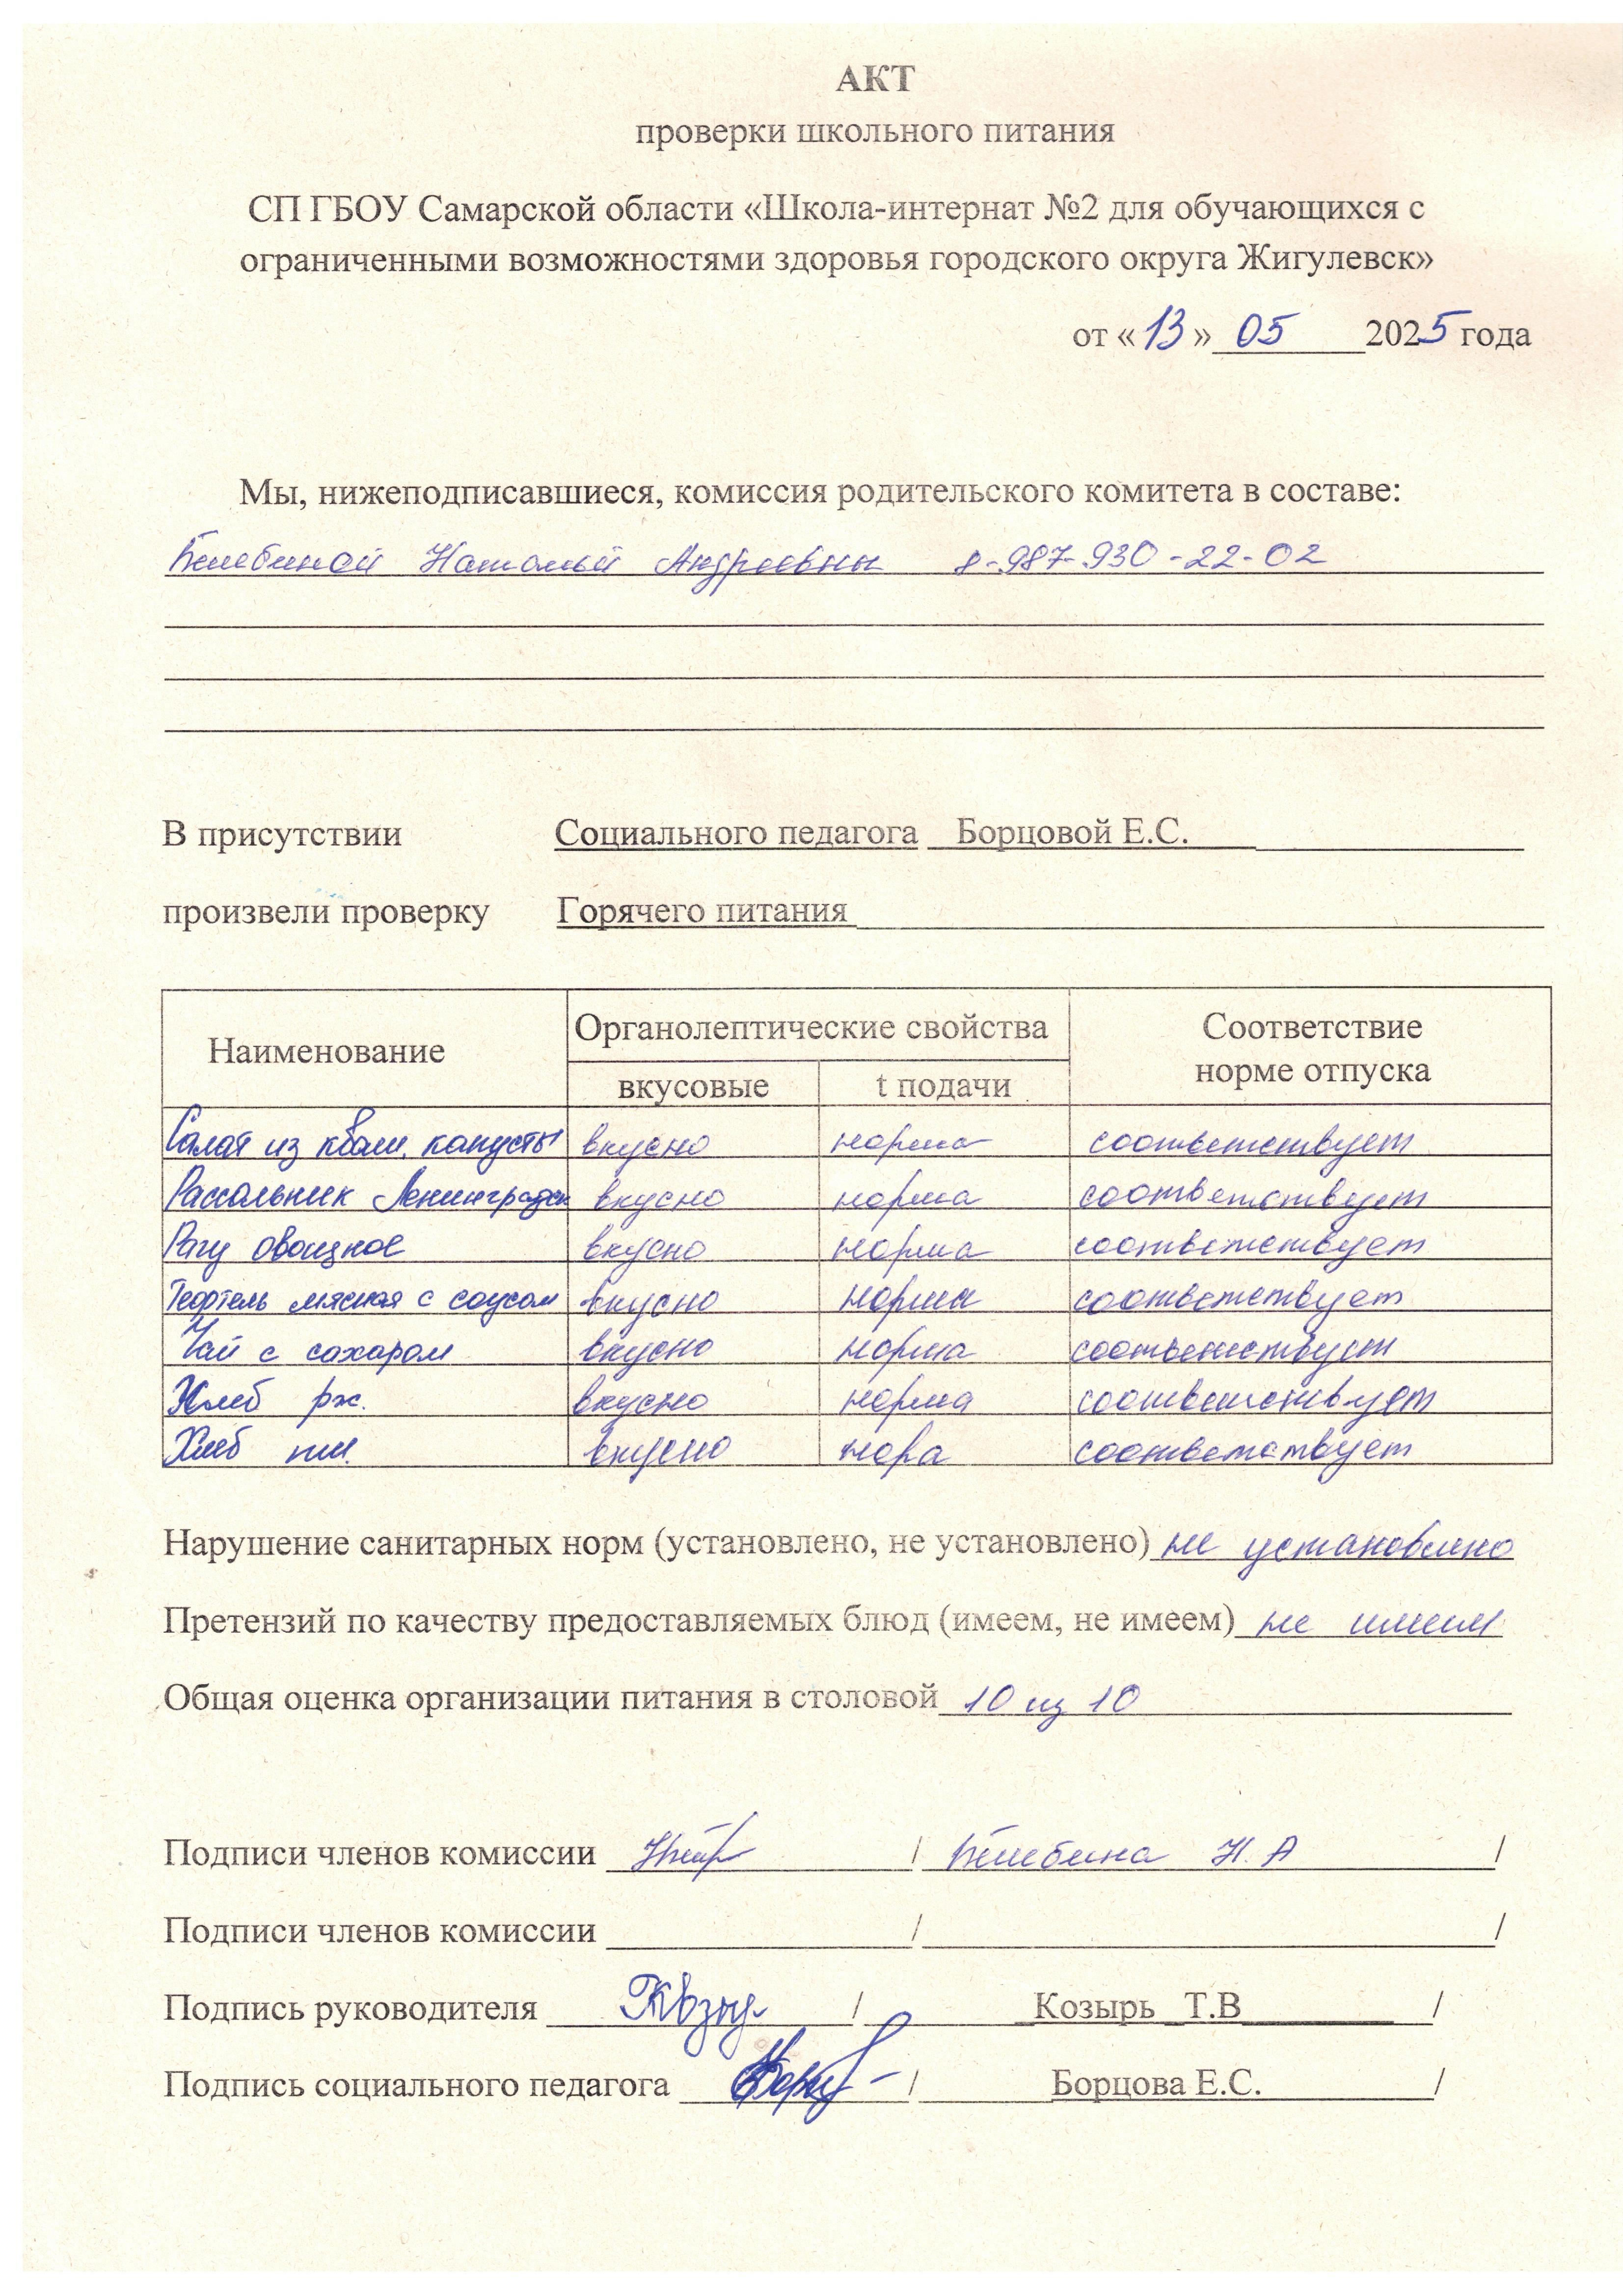 АКТ
проверки школьного питания
СП ГБОУ Самарской области «Школа-интернат №2 для обучающихся с
ограниченными возможностями здоровья городского округа Жигулевск»
от «13» 05 2025 года
Мы, нижеподписавшиеся, комиссия родительского комитета в составе:
Натальи Андреевны 8-987-930-22-02
В присутствии Социального педагога Борцовой Е.С.
произвели проверку Горячего питания
Наименование Органолептические свойства Соответствие
норме отпуска
вкусовые t подачи
Салат из кваш. капусты вкусно норма соответствует
Рассольник Ленинградск вкусно норма соответствует
Рагу овощное вкусно норма соответствует
мясная с соусом вкусно норма соответствует
Чай с сахаром вкусно норма соответствует
Хлеб рж. вкусно норма соответствует
Хлеб пш. вкусно нора соответствует
Нарушение санитарных норм (установлено, не установлено) не установлено
Претензий по качеству предоставляемых блюд (имеем, не имеем) не имеем
Общая оценка организации питания в столовой 10 из 10
Подписи членов комиссии / Н.А /
Подписи членов комиссии / /
Подпись руководителя / Козырь Т.В /
Подпись социального педагога / Борцова Е.С. /